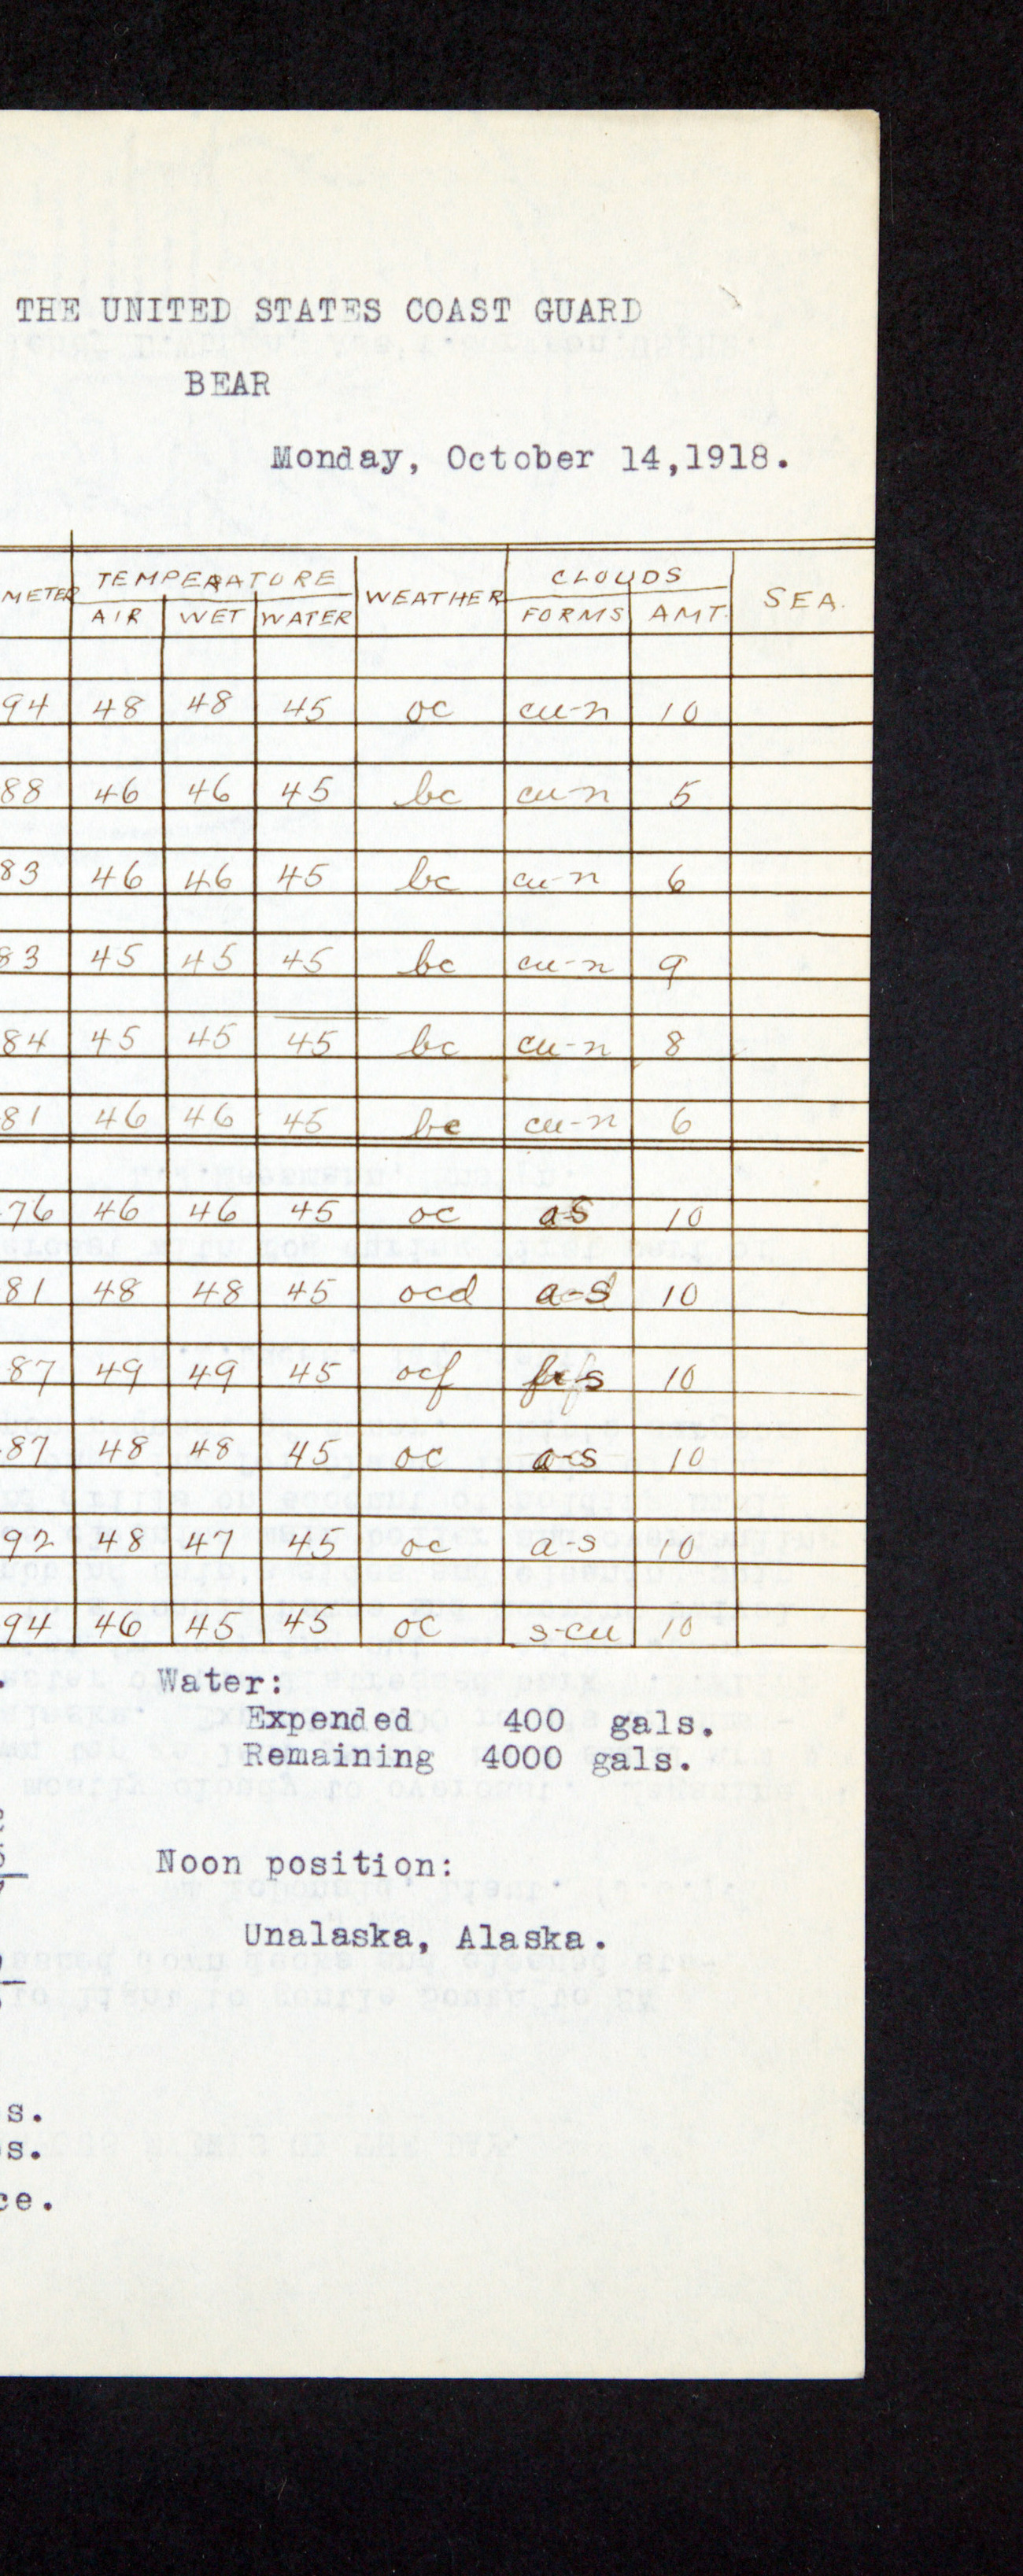 THE UNITED STATES COAST GUARD
BEAR
Monday, October 14,1918.
METER TEMPERATURE WEATHER CLOUDS SEA.
AIR WET WATER FORMS AMT.
94 48 48 45 oc cu-n 10
88 46 46 45 bc cu-n 5
83 46 46 45 bc cu-n 6
83 45 45 45 bc cu-n 9
84 45 45 45 bc cu-n 8
81 46 46 45 bc cu-n 6
76 46 46 45 oc a-s 10
81 48 48 45 ocd a-s 10
87 49 49 45 ocf 10
87 48 48 45 oc a-s 10
92 48 47 45 oc a-s 10
94 46 45 45 oc s-cu 10
Water:
Expended 400 gals.
Remaining 4000 gals.
Noon position:
Unalaska, Alaska.
s.
s.
ce.